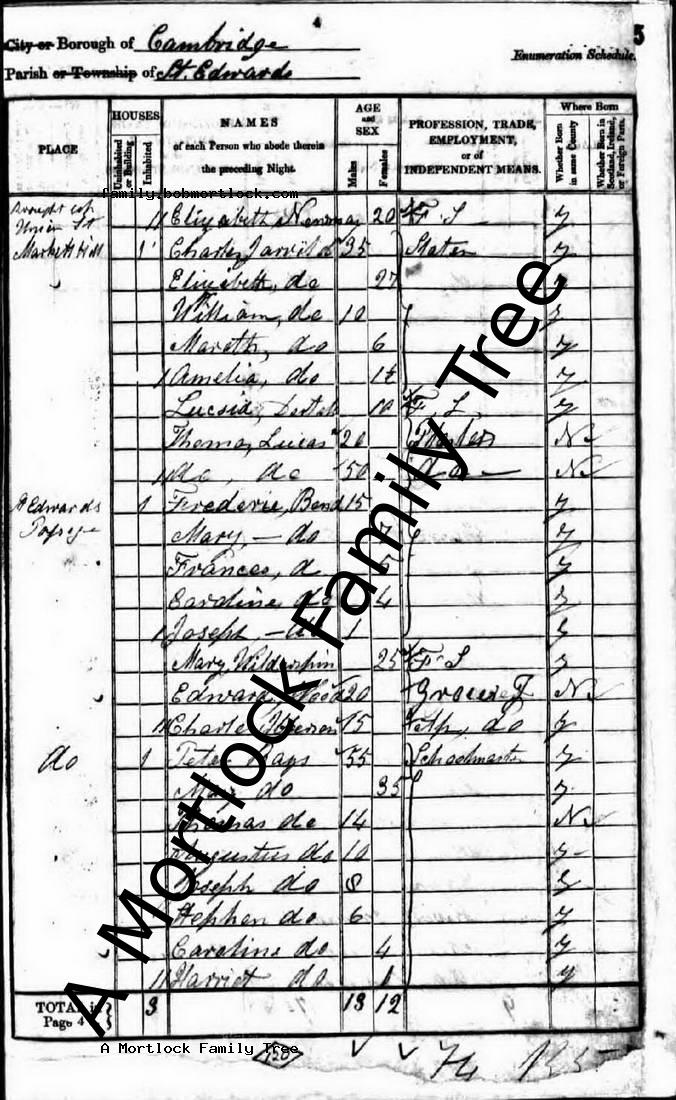 4
5
City or Borough of Cambridge
Enumeration Schedule.
Parish or Township of St. Edwards
PLACE
HOUSES
Uninhabited or Building
Inhabited
NAMES
of each Person who abode therein the preceding Night.
AGE and SEX
Males
Females
PROFESSION, TRADE, EMPLOYMENT, or of INDEPENDENT MEANS.
Where Born
Whether Born in same County
Whether Born in Scotland, Ireland, or Foreign Parts.
family.bobmortlock.com
Brought up Elizabeth Newman 20 F S y
Union St
Markett Hill 1 Charles 35 y
Elizabeth, do 27 y
William, do 10 y
do 6 y
Amelia, do y
10 F. S. y
Thomas, Lucas 20 N
do, do 50 do N
St Edwards 1 Frederic, Bond 15 y
Mary, — do 7 y
Frances, d y
Caroline, do 4 y
Joseph, — do 1 y
Mary 25 F S y
Edward, 20 N
Charles 15 do y
do 1 Peter 55 Schoolmaster y
Mary do 35 y
Thomas do 14 N
Augustus do 10 y
Joseph do 8 y
Stephen do 6 y
Caroline do 4 y
Harriet do 1 y
TOTAL in Page 4 3 13 12
A Mortlock Family Tree
A Mortlock Family Tree
74